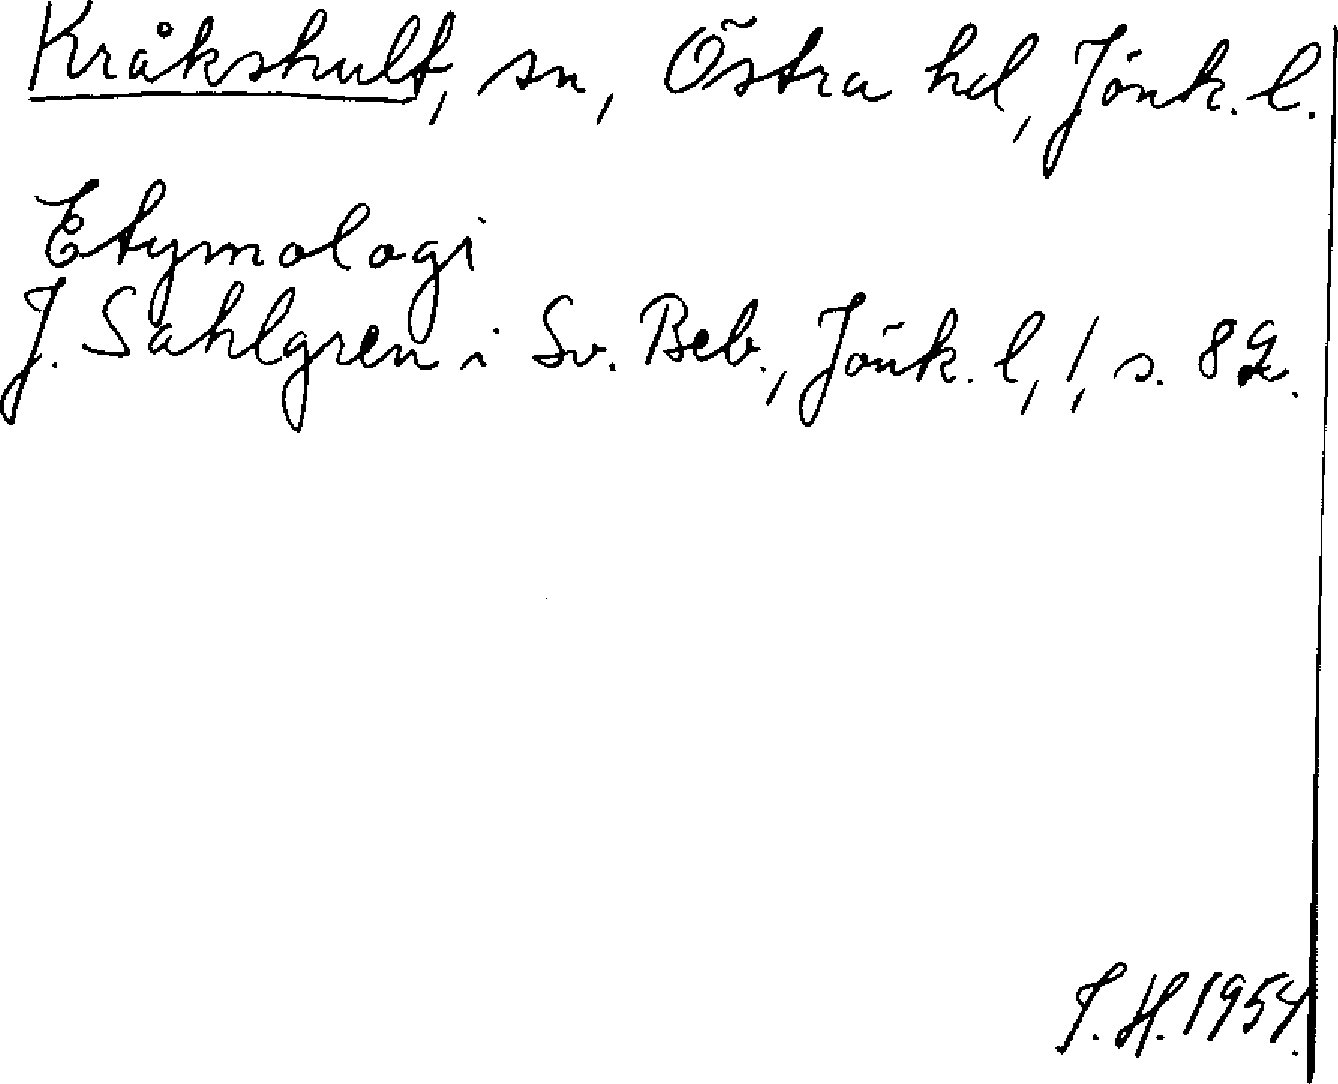 Kråkshult, sn, Östra hd, Jönk. l.
Etymologi
J. Sahlgren i Sv. Beb., Jönk. l, 1, s.
J. H. 1954.